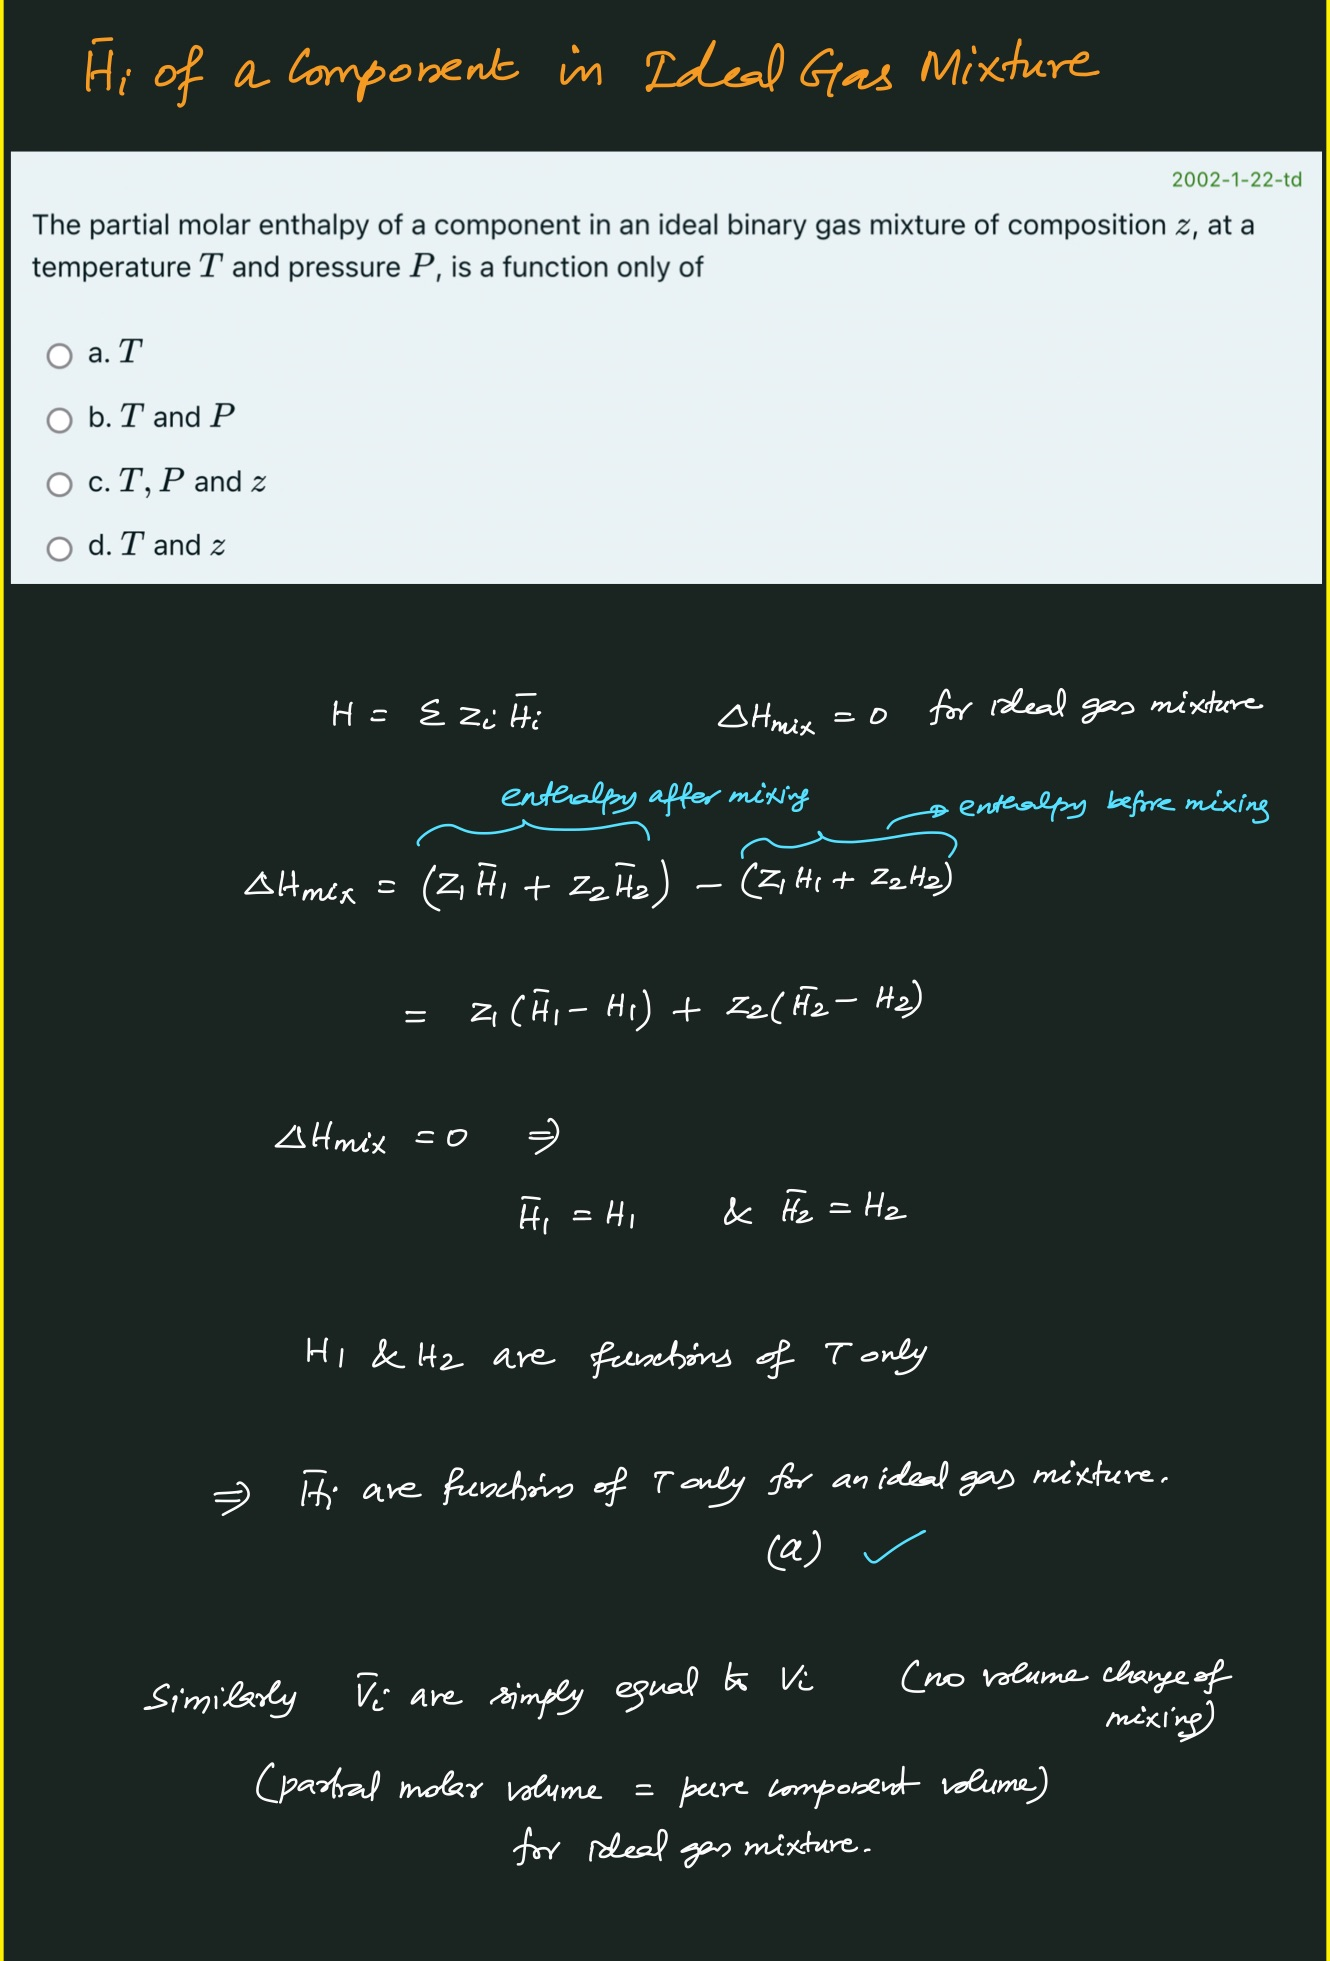 H̄i of a Component in Ideal Gas Mixture
2002-1-22-td
The partial molar enthalpy of a component in an ideal binary gas mixture of composition z, at a
temperature T and pressure P, is a function only of
a. T
b. T and P
c. T, P and z
d. T and z
H = Σ Zi H̄i    ΔHmix = 0 for ideal gas mixture
enthalpy after mixing → enthalpy before mixing
ΔHmix = (Z1 H̄1 + Z2 H̄2) − (Z1 H1 + Z2 H2)
= Z1 (H̄1 − H1) + Z2 (H̄2 − H2)
ΔHmix = 0 ⇒
H̄1 = H1 & H̄2 = H2
H1 & H2 are functions of T only
⇒ H̄i are functions of T only for an ideal gas mixture.
(a) ✓
Similarly V̄i are simply equal to Vi (no volume change of
mixing)
(partial molar volume = pure component volume)
for ideal gas mixture.